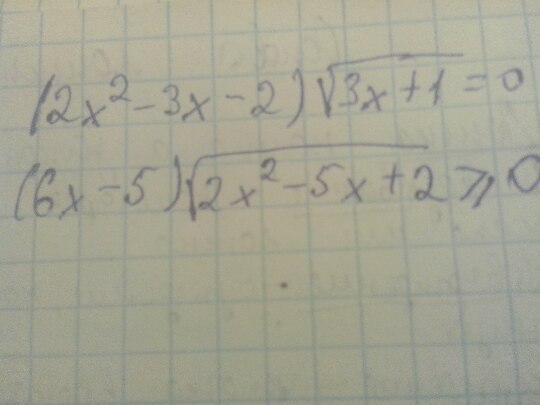 (2x²-3x-2)√3x+1=0
(6x-5)√2x²-5x+2⩾0